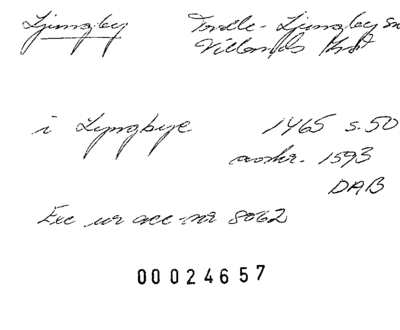 Ljungby Trolle-Ljungby sn
Villands hd
i Lyngbye 1465 s. 50
avskr. 1593
DAB
Exc ur acc-nr 8062
00024657